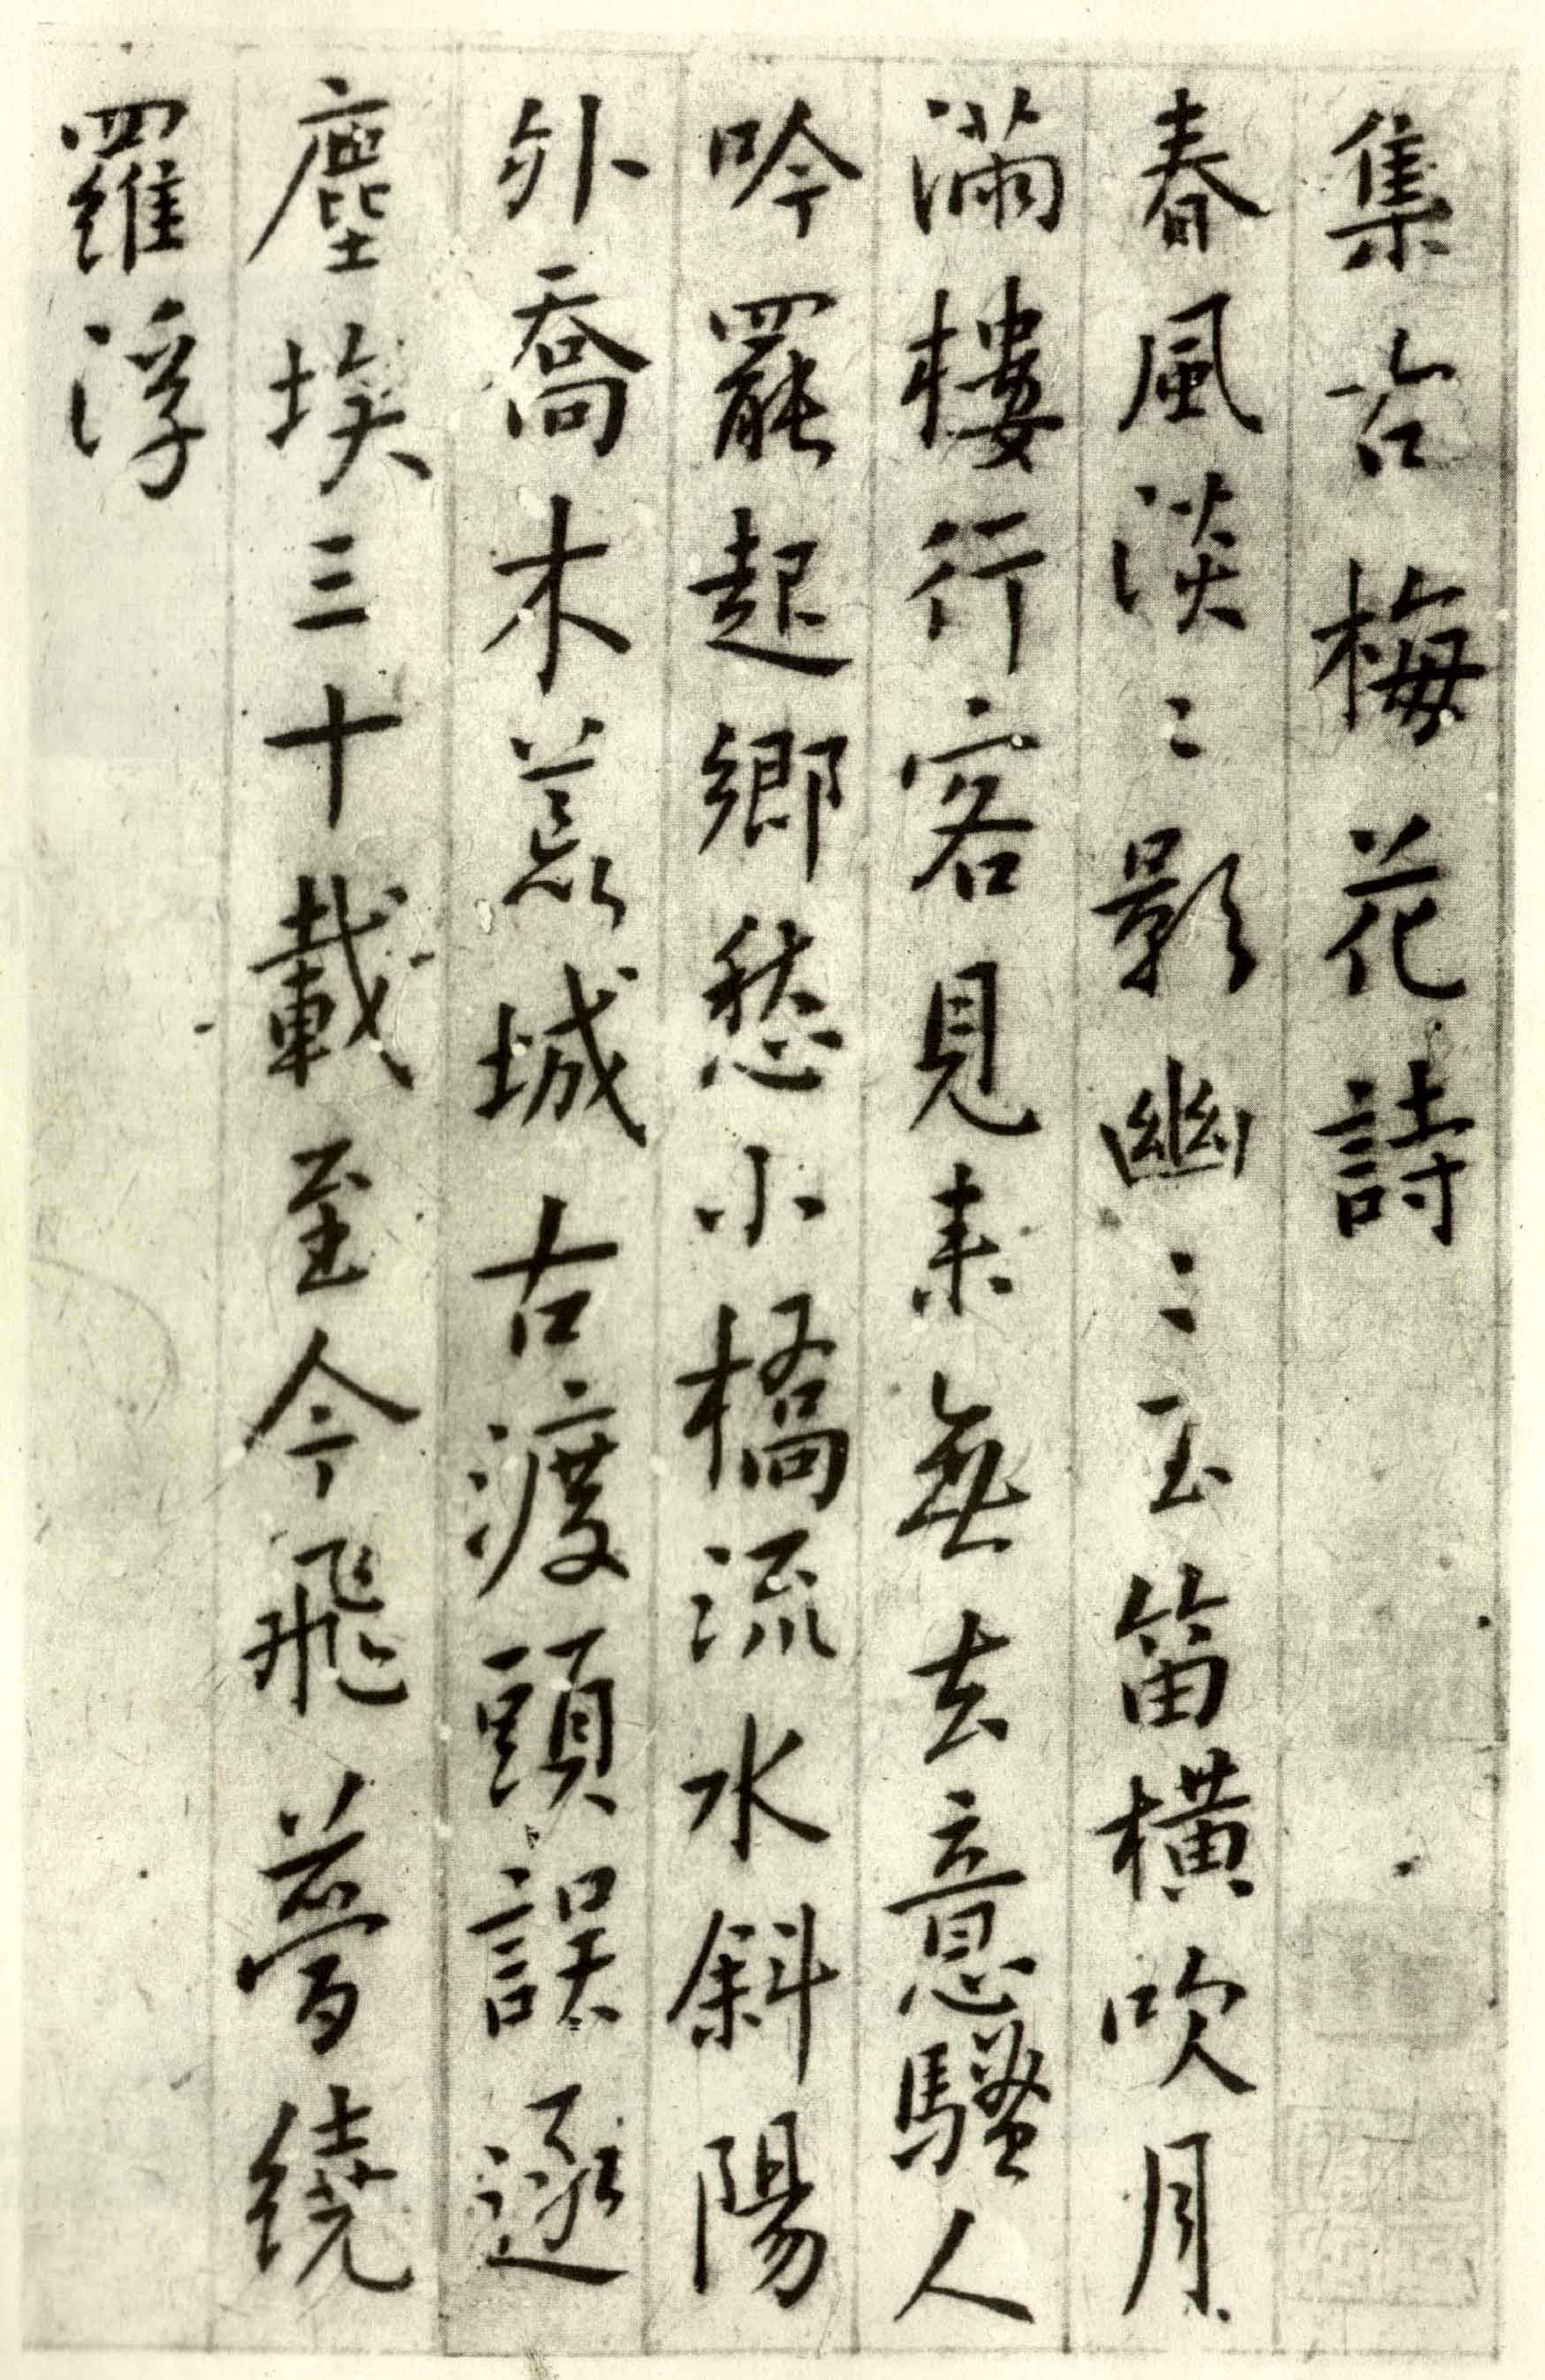 集古梅花詩
春風淡〻影幽〻玉笛橫吹月
滿樓行客見来無去意騷人
吟罷起鄉愁小橋流水斜陽
外喬木荒城古渡頭誤逐
塵埃三十載至今飛夢繞
羅浮